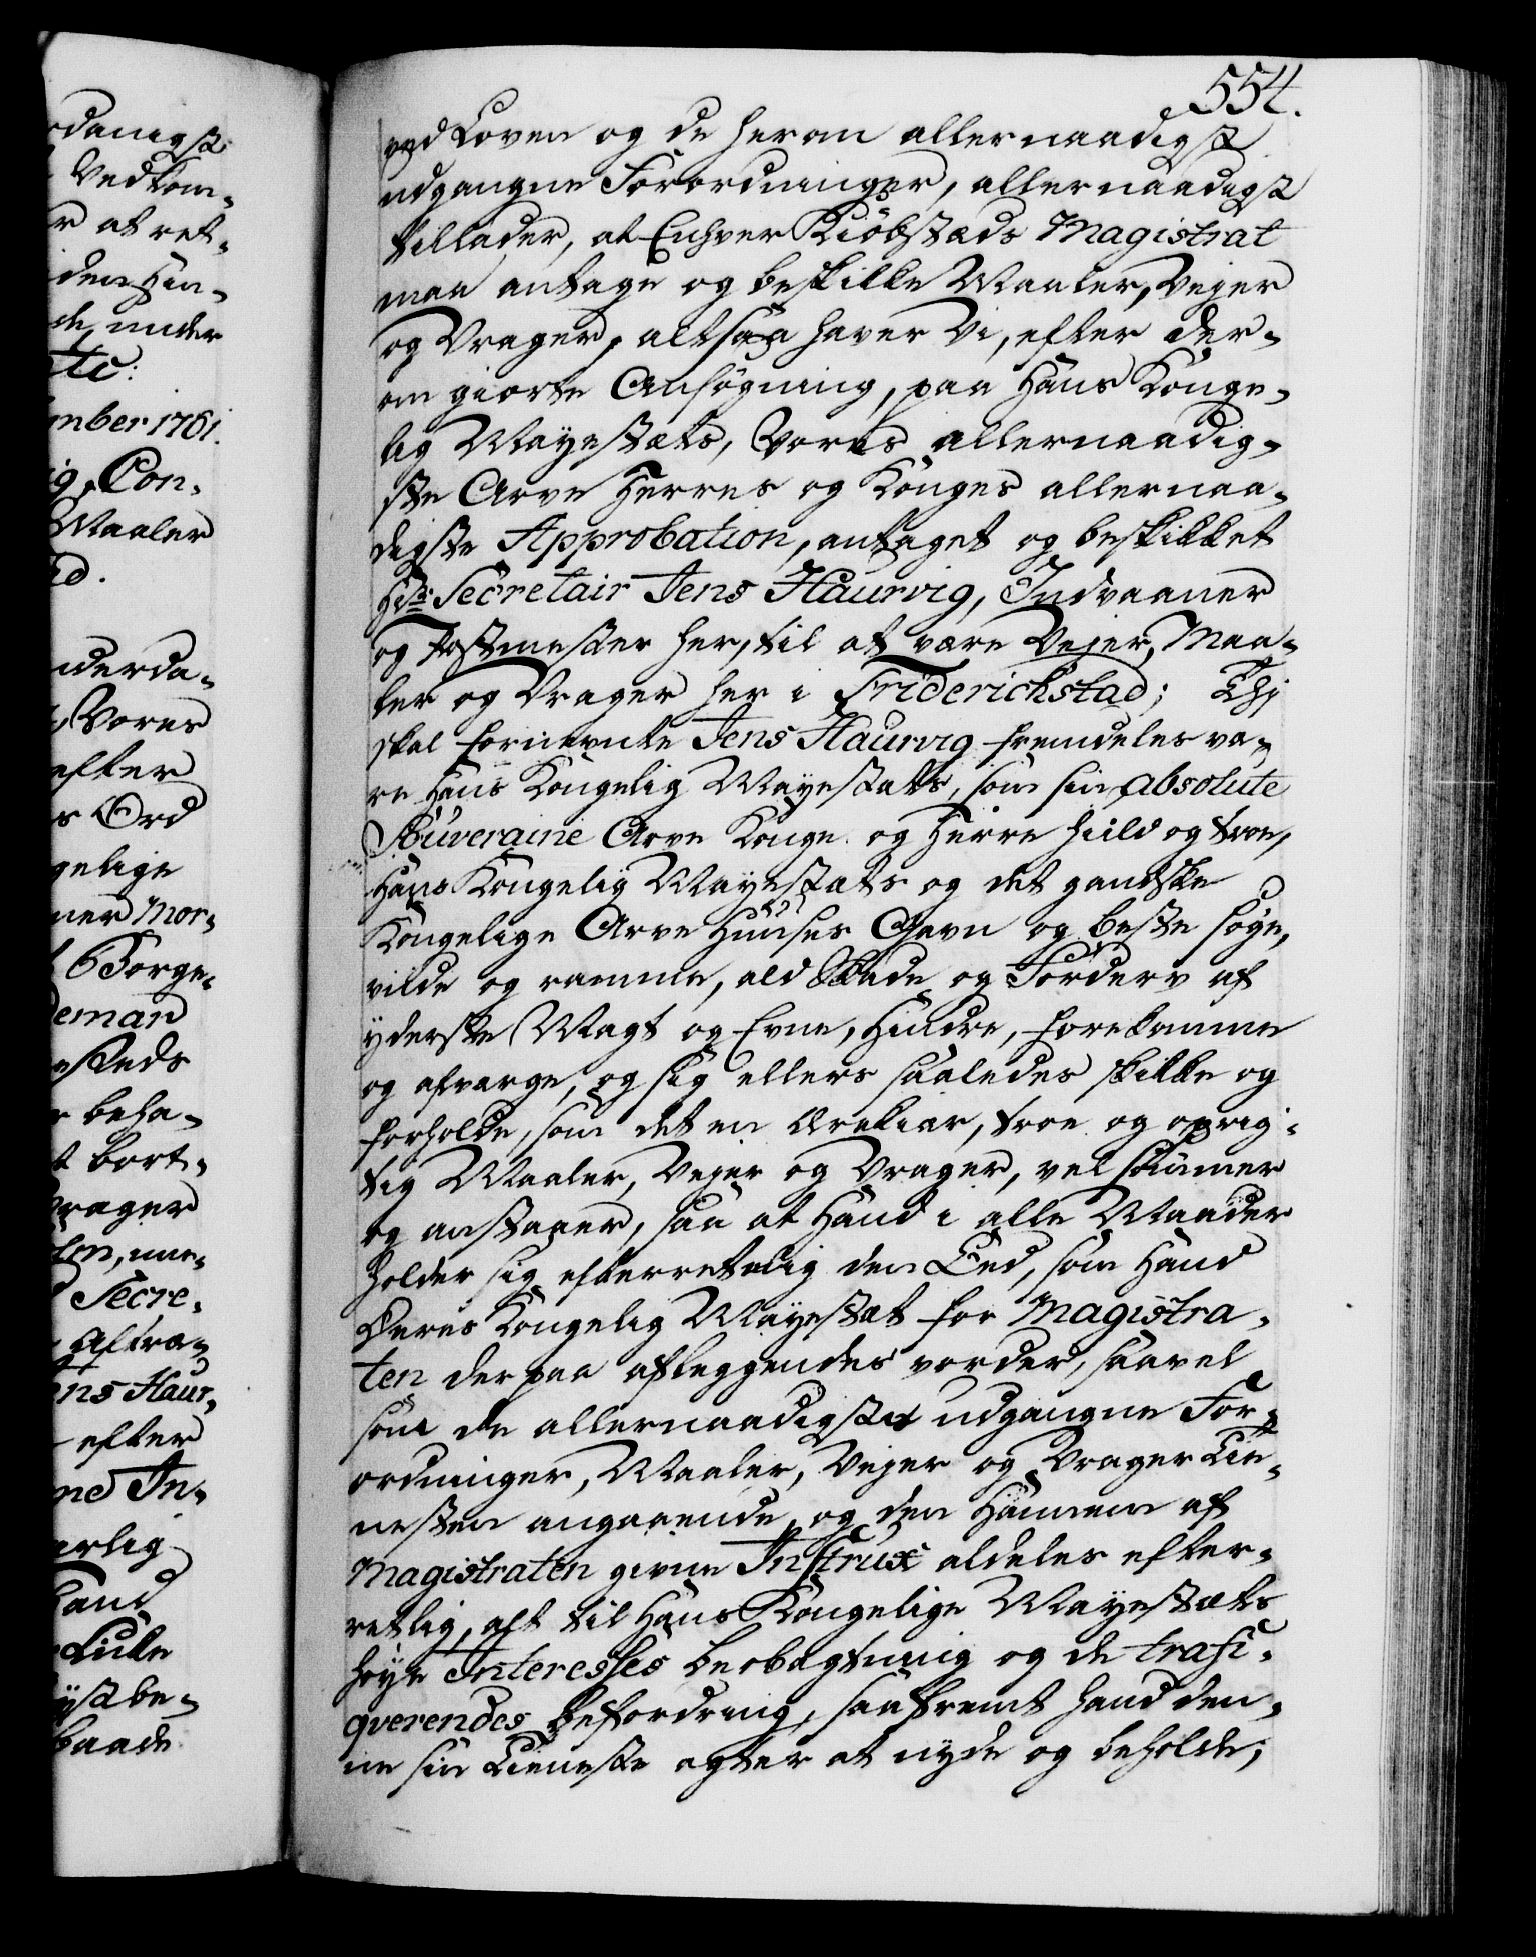 554.
ved Loven og de herom allernaadigst
udgangne Forordninger, allernaadigst
tillader, at Enhver Kiöbstæds Magistrat
maa antage og beskikke Maaler, Vejer
og Vrager, altsaa haver Vi, efter der-
om giorte Ansögning, paa Hans Konge-
lig Mayestæts, Vores allernaadig-
ste Arve Herres og Konges allernaa-
digste Approbation, antaget og beskikket
Hr: Secretair Jens Haurvig, Indvaaner
og Postmester her, til at være Vejer, Maa-
ler og Vrager her i Friderichstad; Thj
skal fornevnte Jens Haurvig fremdeles væ-
re Hans Kongelig Mayestæts, som sin absolute
Souveraine Arve Konge og Herre huld og troe,
Hans Kongelig Mayestæts og det gandske
Kongelige Arve Huuses Gavn og beste söge,
vilde og ramme, ald Skade og Forderv af
yderste Magt og Evne, Hindre, forekomme
og afværge, og sig ellers saaledes skikke og
forholde, som det en Ærekiær, troe og oprig-
tig Maaler, Vejer og Vrager, vel sömmer
og anstaaer, saa at Hand i alle Maader
holder sig efterrettelig den Eed, som Hand
Deres Kongelig Mayestæt for Magistra-
ten derpaa afleggendes vorder, saavel
som de allernaadigst udgangne For-
ordninger, Maaler, Vejer og Vrager Tie-
nesten angaaende, og den Hannem af
Magistraten givne Instrux aldeles efter-
retlig, alt til Hans Kongelige Mayestæts
höye Interesses beobagtning og de trafi-
qverendes befordring, saafremt hand den-
ne sin Tieneste agter at nyde og beholde;